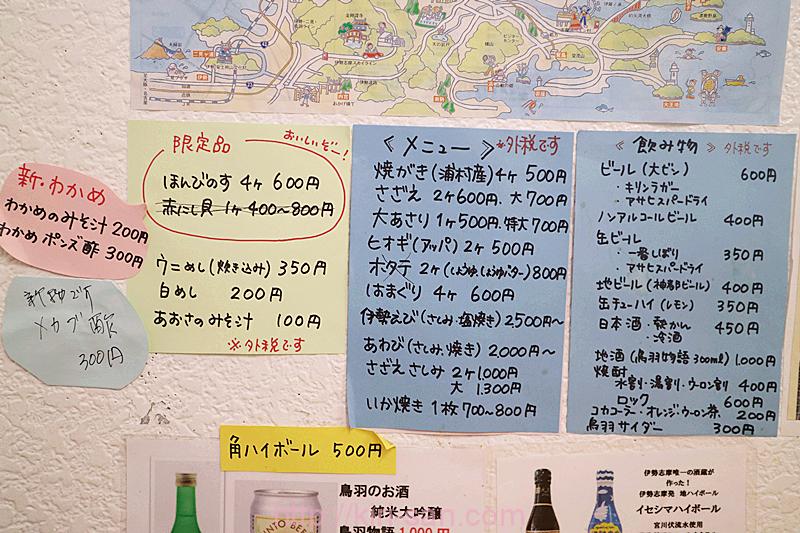 新・わかめ
わかめのみそ汁 200円
わかめ ポンズ酢 300円
新物です
メカブ酢
300円
限定品
おいしいぞー!
ほんびのす 4ヶ 600円
赤にし貝 1ヶ 400〜800円
ウニめし(炊き込み) 350円
白めし 200円
あおさのみそ汁 100円
※外税です
≪メニュー≫ ※外税です
焼がき(浦村産) 4ヶ 500円
さざえ 2ヶ600円、大 700円
大あさり 1ヶ500円、特大700円
ヒオギ(アッパ) 2ヶ 500円
ホタテ 2ヶ(しょうゆ、しょうゆバター) 800円
はまぐり 4ヶ 600円
伊勢えび(さしみ、塩焼き) 2,500円〜
あわび(さしみ、焼き) 2,000円〜
さざえ さしみ 2ヶ 1,000円
大 1,300円
いか焼き 1枚 700〜800円
≪飲み物≫ 外税です
ビール(大ビン) 600円
・キリンラガー
・アサヒスーパードライ
ノンアルコールビール 400円
缶ビール
・一番しぼり 350円
・アサヒスーパードライ
地ビール(神都ビール) 400円
缶チューハイ(レモン) 350円
日本酒・熱かん 450円
・冷酒
地酒(鳥羽物語 300ml) 1,000円
焼酎
水割り・湯割・ウーロン割 400円
ロック 600円
コカコーラ・オレンジ・ウーロン茶 200円
鳥羽サイダー 300円
角ハイボール 500円
鳥羽のお酒
純米大吟醸
鳥羽物語 1,000円
伊勢志摩唯一の酒蔵が
作った!
伊勢志摩発 地ハイボール
イセシマハイボール
宮川伏流水使用